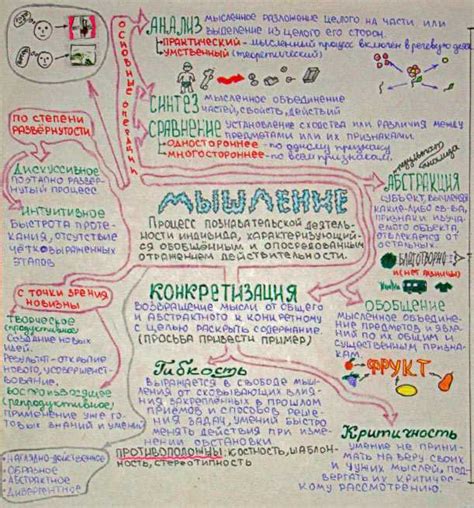 АНАЛИЗ
мысленное разложение целого на части или
выделение из целого его сторон.
ПРАКТИЧЕСКИЙ - мысленный процесс включен в речевую
УМСТВЕННЫЙ (теоретический)
основные операции
СИНТЕЗ мысленное объединение
частей, свойств, действий
СРАВНЕНИЕ установление сходства или различия между
предметами или их признаками.
одностороннее - по одному признаку
многостороннее - по всем признакам.
по степени
развёрнутости
дискуссивное
поэтапно развер-
нутый процесс
интуитивное
быстрота проте-
кания, отсутствие
чётко выраженных
этапов
МЫШЛЕНИЕ
Процесс познавательской деятель-
ности индивида, характеризующий-
ся обобщённым и опосредованным
отражением действительности.
АБСТРАКЦИЯ
субъект, вычленяя
какие-либо св-ва,
признаки изучаемого
объекта,
отвлекается от
остальных.
БЛАГОТВОРНО
и нет различно
с точки зрения
новизны
творческое
(продуктивное)
создание новых
идей.
Результат - открытие
нового, усовершенст-
вование.
воспроизводящее
(репродуктивное)
применение уже го-
товых знаний и умений
КОНКРЕТИЗАЦИЯ
возвращение мысли от общего
и абстрактного к конкретному
с целью раскрыть содержание.
(просьба привести пример)
ОБОБЩЕНИЕ
мысленное объедине-
ние предметов и явле-
ний по их общим и
существенным призна-
кам.
ФРУКТ
Гибкость
выражается в свободе мыш-
ления от сковывающих влия-
ния закрепленных в прошлом
приёмов и способов реше-
ния задач, умений быстро
менять действия при изме-
нении обстановки
противоположны: косность, шаблон-
ность, стереотипность
Критичность
умение не прини-
мать на веру своих
и чужих мыслей, под-
вергать их критичес-
кому рассмотрению.
наглядно-действенное
образное
абстрактное
дивергентное